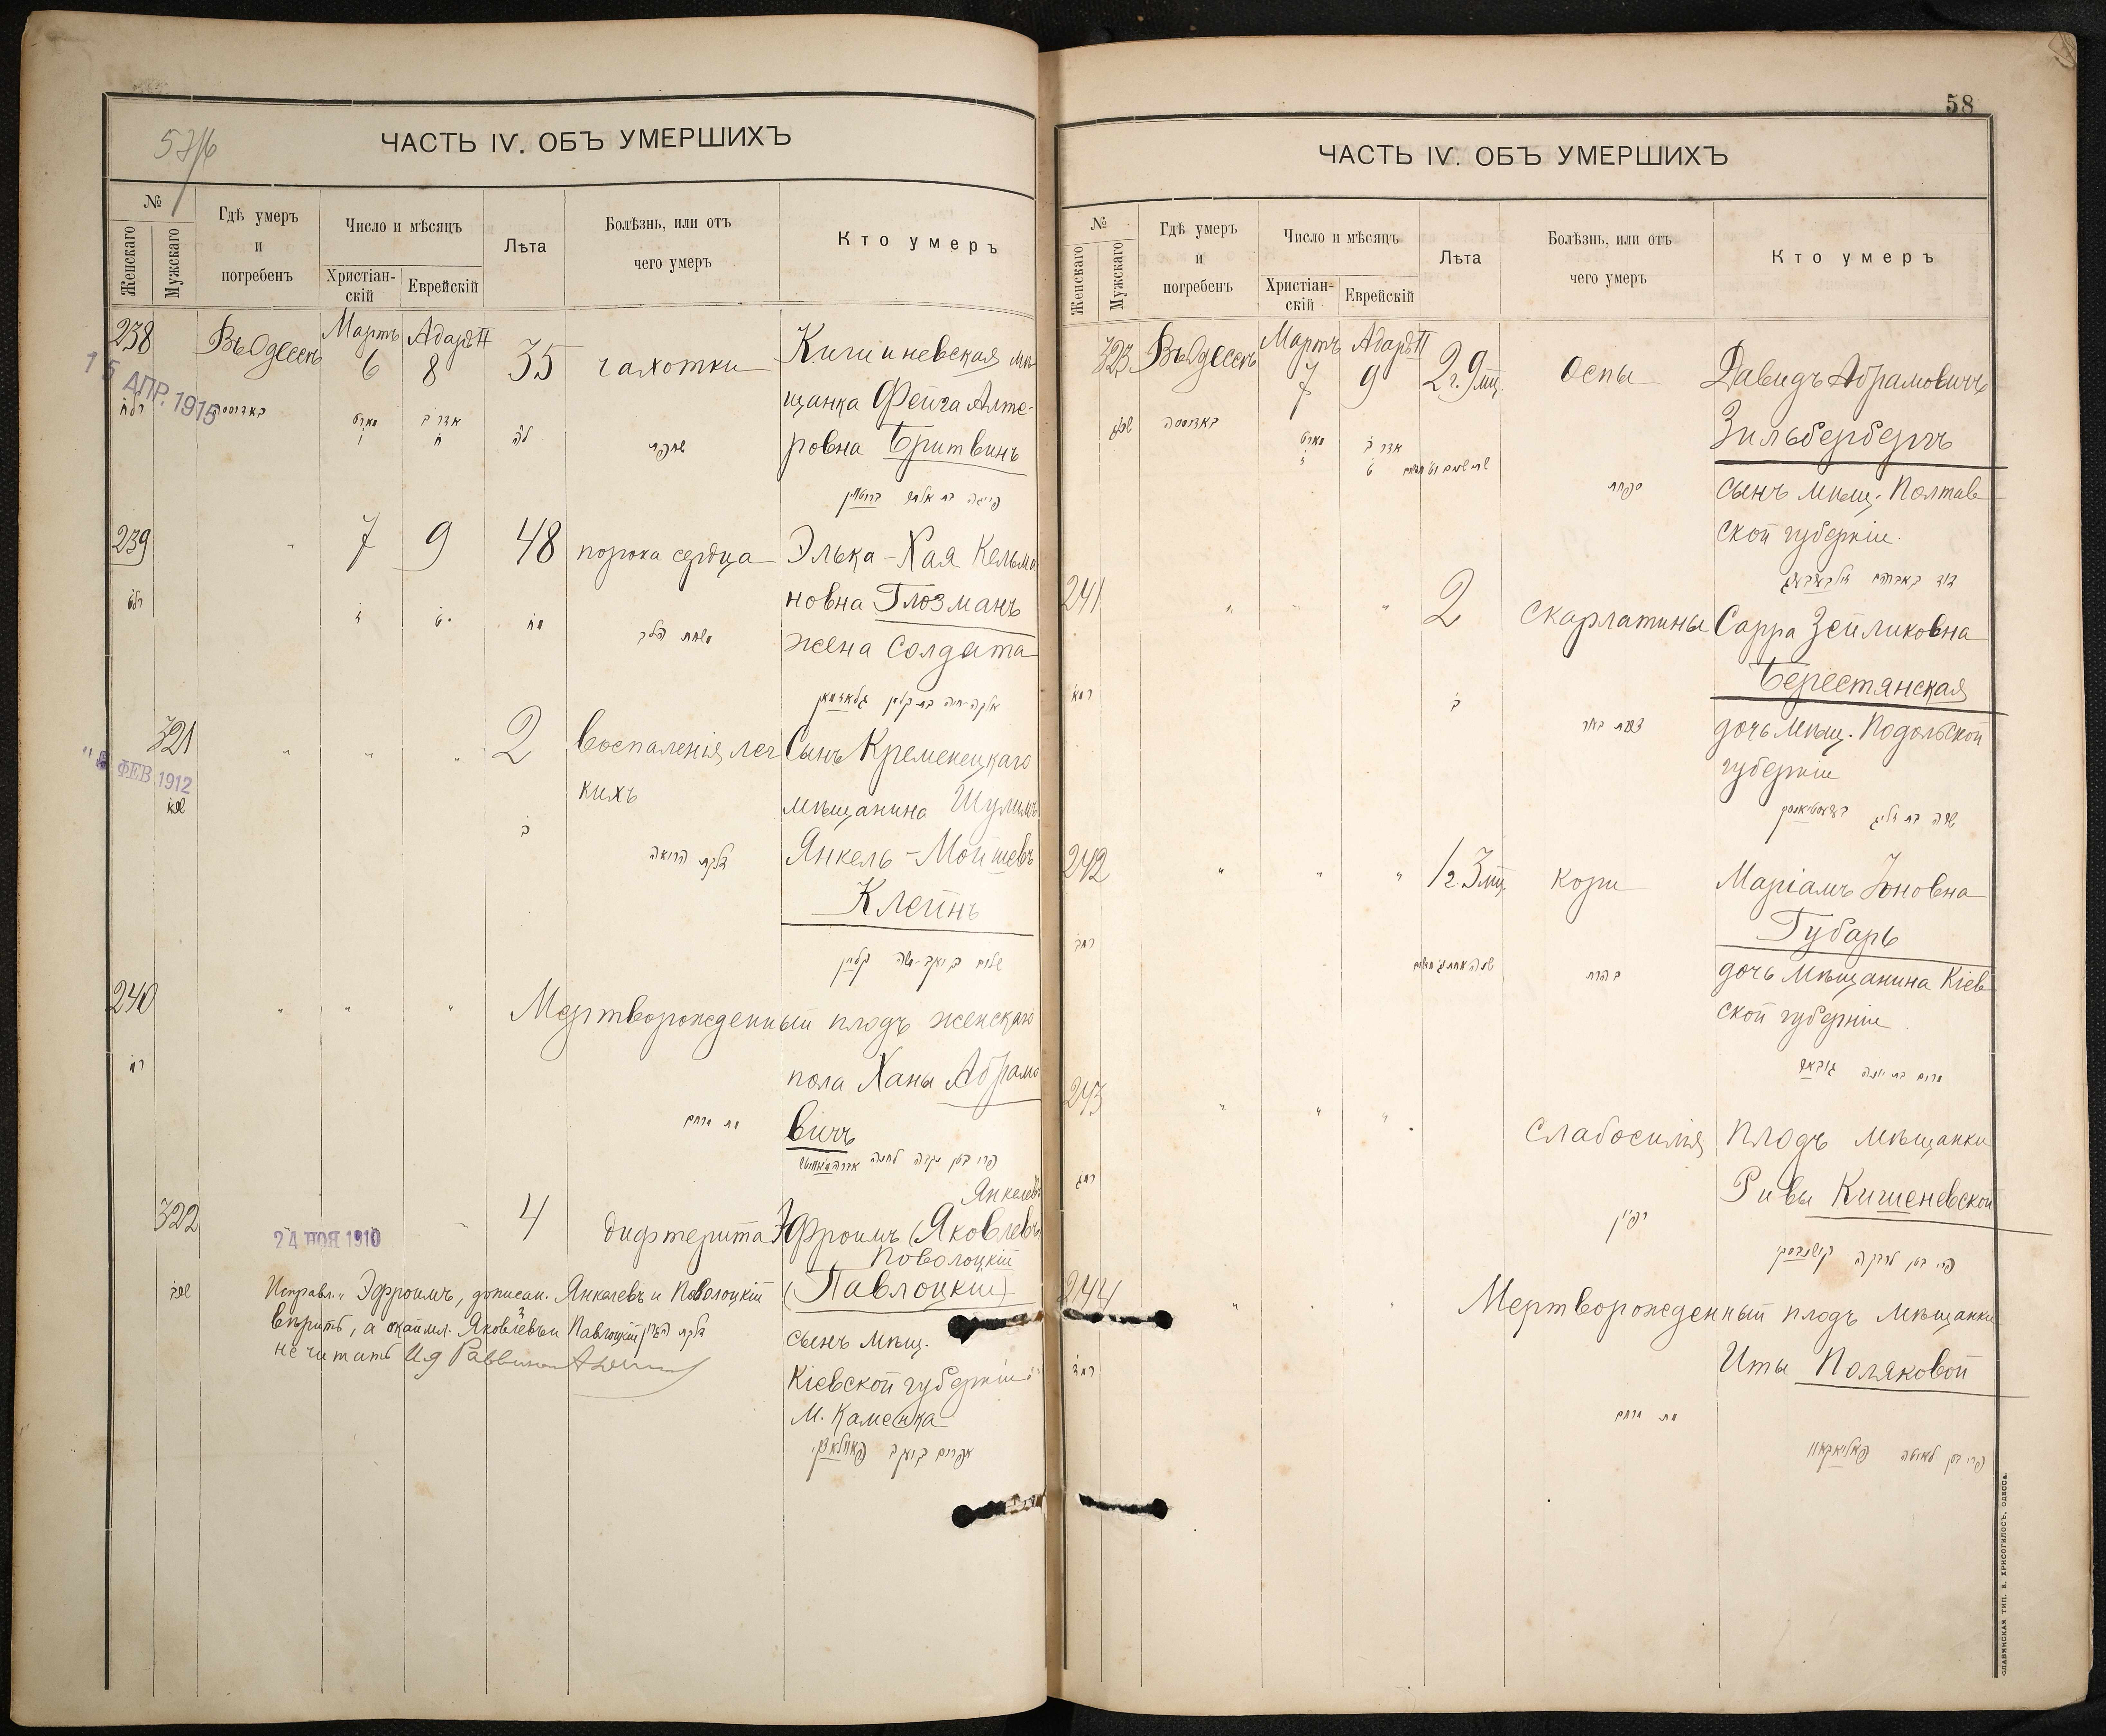 57/6
ЧАСТЬ IV. ОБЪ УМЕРШИХЪ
№
Женскаго
Мужскаго
Гдѣ умеръ
и
погребенъ
Число и мѣсяцъ
Христіан-
скій
Еврейскій
Лѣта
Болѣзнь, или отъ
чего умеръ
Кто умеръ
238
Въ Одессѣ
Мартъ
6
Адаръ II
8
35
чахотки
Кишиневская мѣ
щанка Фейга Алте-
ровна Бритвинъ
15 АПР. 1915
רלח
באדעססא
מארט
ו
אדר ב
ח
לה
שחפת
239
"
7
9
48
порока сердца
Элька-Хая Кельма
новна Глозманъ
жена солдата
רלט
ז
ט
מח
321
"
"
"
2
воспаленія лег
кихъ
Сынъ Кременецкаго
мѣщанина Шулимъ
Янкель-Мойшевъ
Клейнъ
ФЕВ 1912
שכא
ב
דלקת הריאה
240
"
"
"
Мертворожденный плодъ женскаго
пола Ханы Абрамо
вичъ
רמ
322
4
дифтерита
Эфроимъ (Яковлевъ
Янкелевъ
Поволоцкій
(Павлоцкій)
сынъ мѣщ.
Кіевской губерніи
М. Каменка
24 НОЯ 1910
שכב
Исправл. „Эфроимъ, дописан. Янкелевъ и Поволоцкій
вѣрить, а окаймл. Яковлевъ и Павлоцкій
не читать И д Раввина
58
ЧАСТЬ IV. ОБЪ УМЕРШИХЪ
№
Женскаго
Мужскаго
Гдѣ умеръ
и
погребенъ
Число и мѣсяцъ
Христіан-
скій
Еврейскій
Лѣта
Болѣзнь, или отъ
чего умеръ
Кто умеръ
323
Въ Одессѣ
Мартъ
7
Адаръ II
9
2 г. 9 мц.
Оспы
Давидъ Абрамовичъ
Зильбербергъ
сынъ мѣщ. Полтав
ской губерніи.
שכג
באדעססא
מארט
ז
אדר ב
ט
241
"
"
"
2
Скарлатины
Сарра Зейликовна
Берестянская
дочь мѣщ. Подольской
губерніи
רמא
ב
242
"
"
"
1 г. 3 мц.
кори
Маріамъ Іоновна
Губарь
дочь мѣщанина Кіев
ской губерніи
רמב
243
"
"
"
Слабосилія
плодъ мѣщанки
Ривы Кишеневской
רמג
רפיון
244
"
"
"
Мертворожденный плодъ мѣщанки
Иты Поляковой
רמד
СЛАВЯНСКАЯ ТИП. Н. ХРИСОГЕЛОСЪ, ОДЕССА.